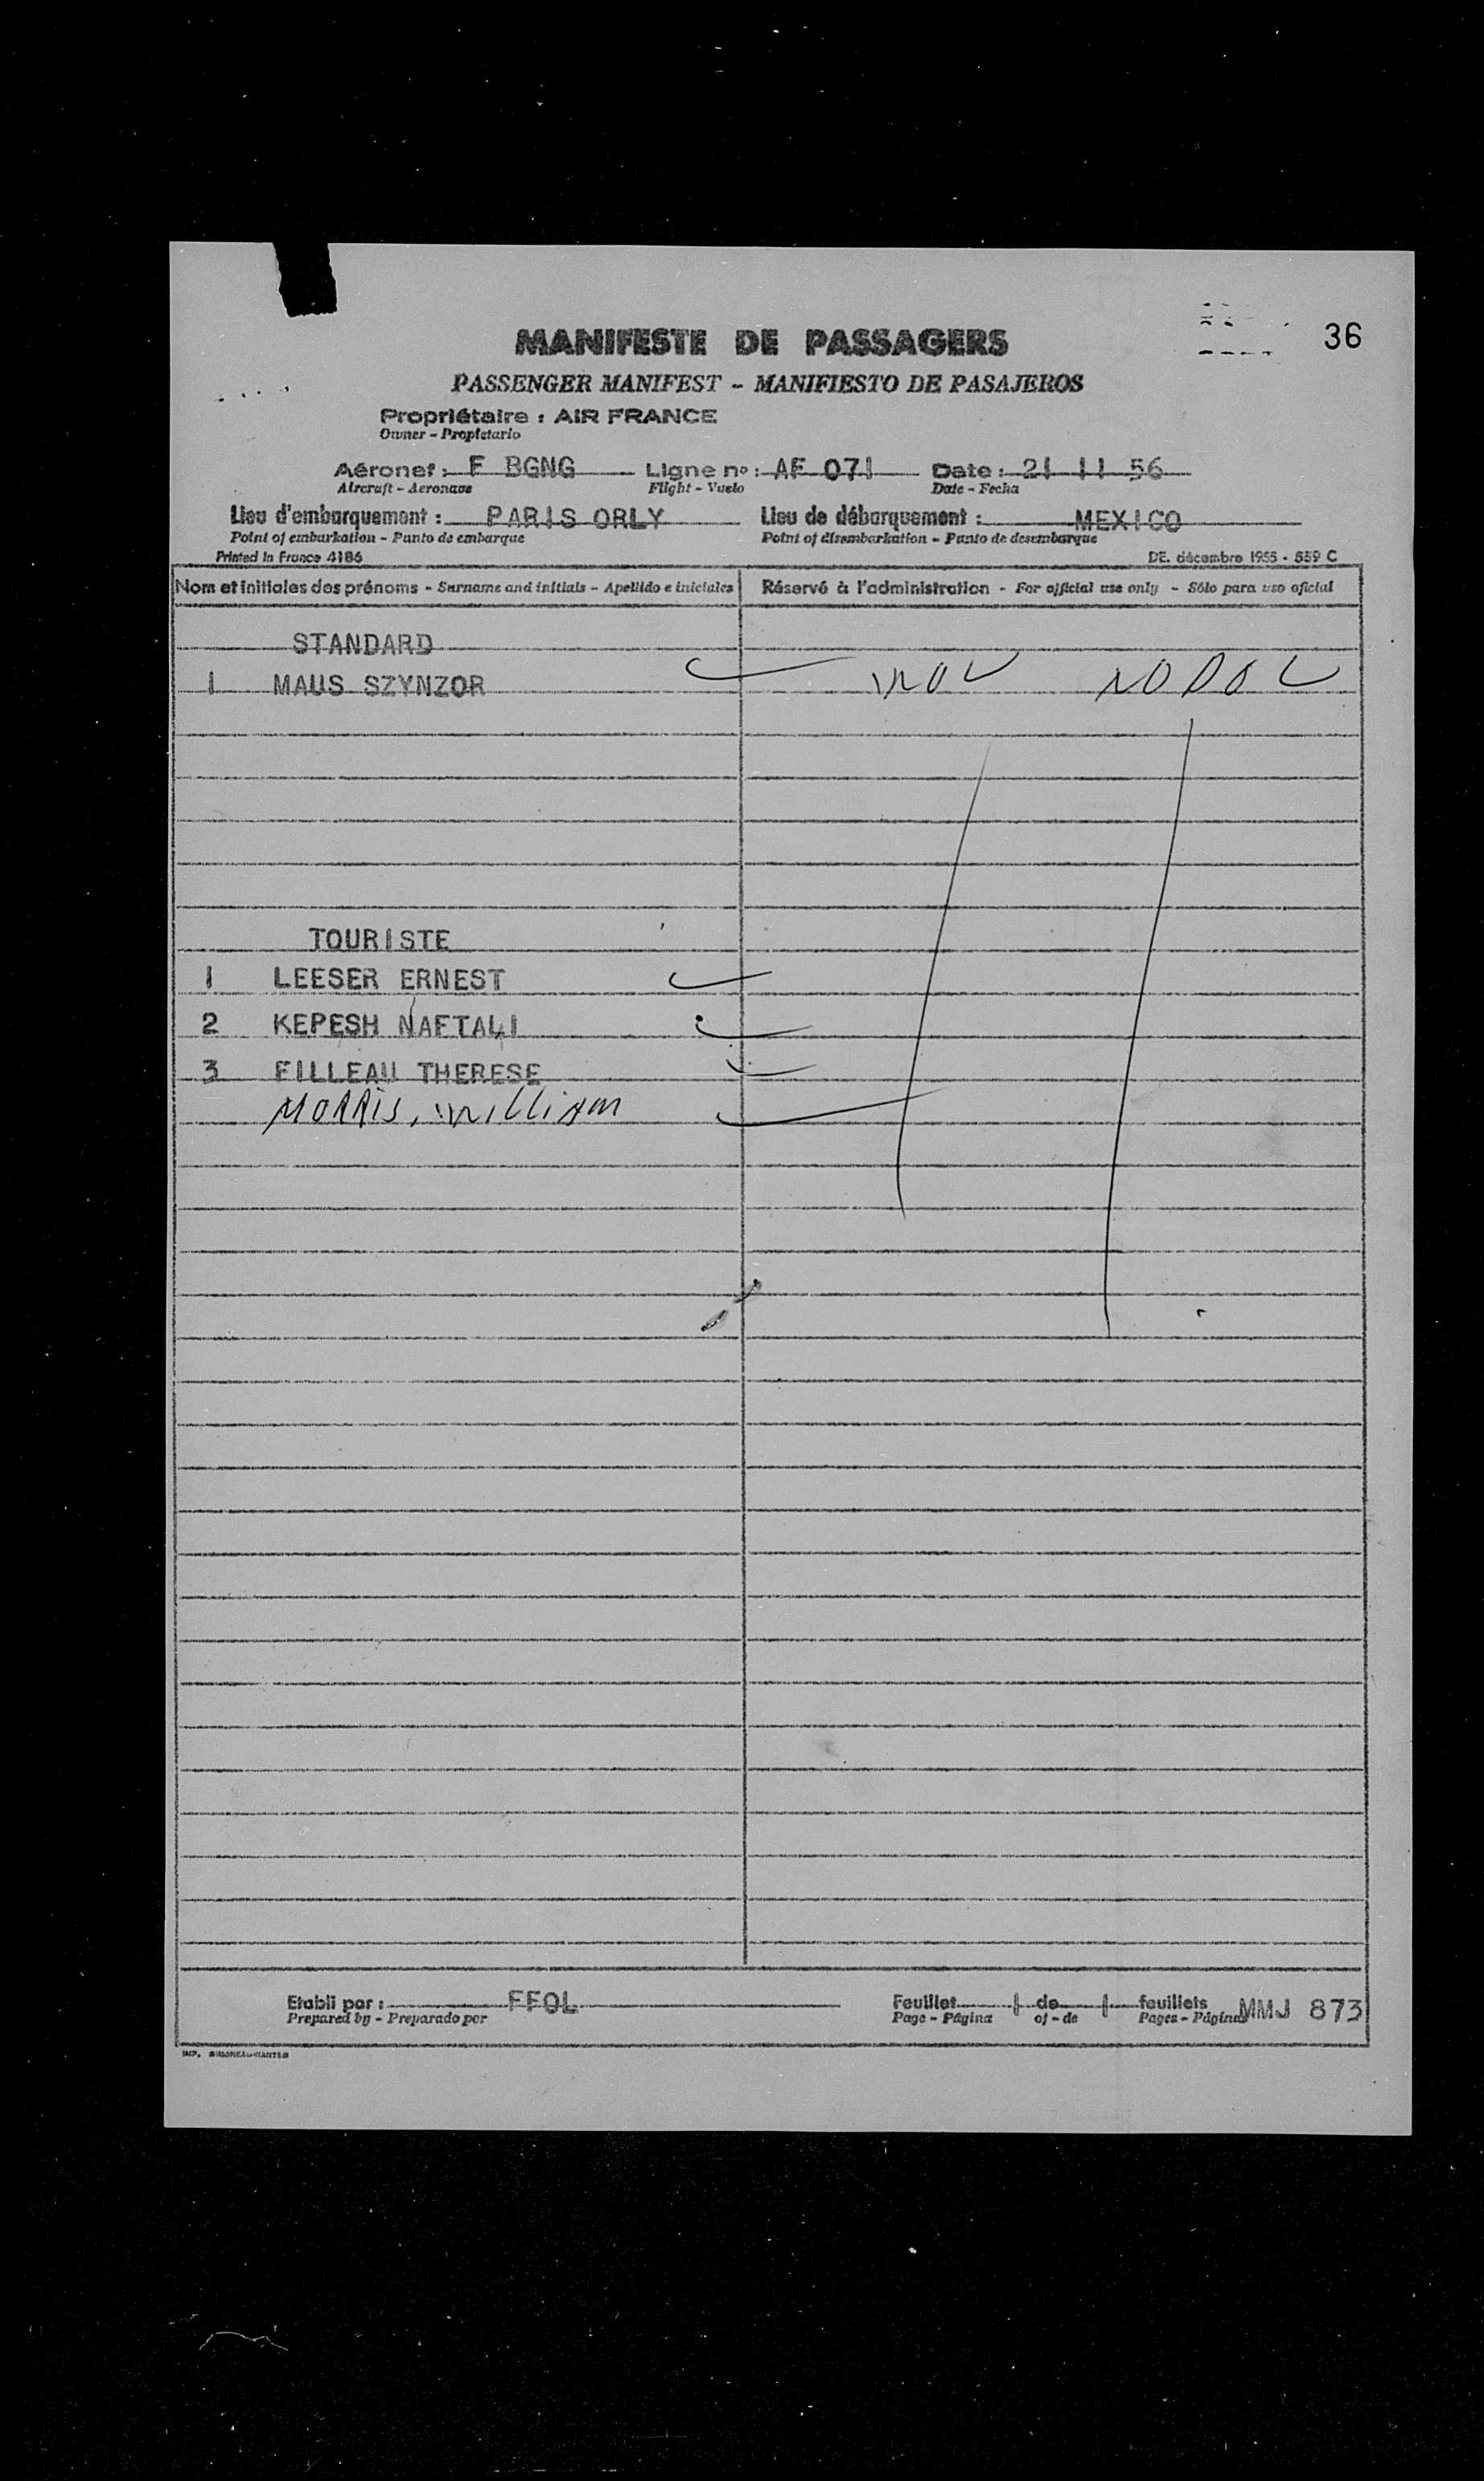 36
MANIFESTE DE PASSAGERS
PASSENGER MANIFEST - MANIFIESTO DE PASAJEROS
Propriétaire : AIR FRANCE
Owner - Propietario
Aéronef : F BGNG Ligne nº : AF 071 Date : 21 11 56
Aircraft - Aeronave Flight - Vuelo Date - Fecha
Lieu d'embarquement : PARIS ORLY Lieu de débarquement : MEXICO
Point of embarkation - Punto de embarque Point of disembarkation - Punto de desembarque
Printed in France 4186 DE. décembre 1955 - 559 C
Nom et initiales des prénoms - Surname and initials - Apellido e iniciales Réservé à l'administration - For official use only - Sólo para uso oficial
STANDARD
1 MAUS SZYNZOR
TOURISTE
1 LEESER ERNEST
2 KEPESH NAFTALI
3 FILLEAU THERESE
MORRIS, William
Etabli par : FFOL Feuillet 1 de 1 feuillets MMJ 873
Prepared by - Preparado por Page - Página of - de Pages - Páginas